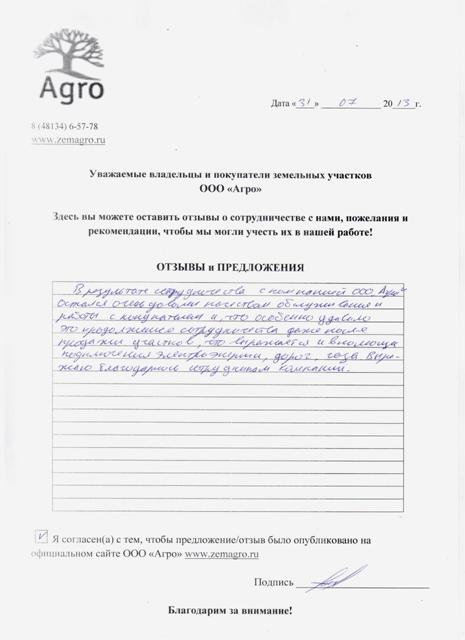 Agro
Дата «31» 07 2013г.
8 (48134) 6-57-78
www.zemagro.ru
Уважаемые владельцы и покупатели земельных участков
ООО «Агро»
Здесь вы можете оставить отзывы о сотрудничестве с нами, пожелания и
рекомендации, чтобы мы могли учесть их в нашей работе!
ОТЗЫВЫ и ПРЕДЛОЖЕНИЯ
В результате сотрудничества с компанией ООО „Агро"
остался очень доволен качеством обслуживания и
работы с клиентами и, что особенно удивило
это продолжение сотрудничества даже после
продажи участков, что выражается и в помощи
подключения электроэнергии, дорог, газа. Выра-
жаю благодарность сотрудникам компании.
Я согласен(а) с тем, чтобы предложение/отзыв было опубликовано на
официальном сайте ООО «Агро» www.zemagro.ru
Подпись
Благодарим за внимание!